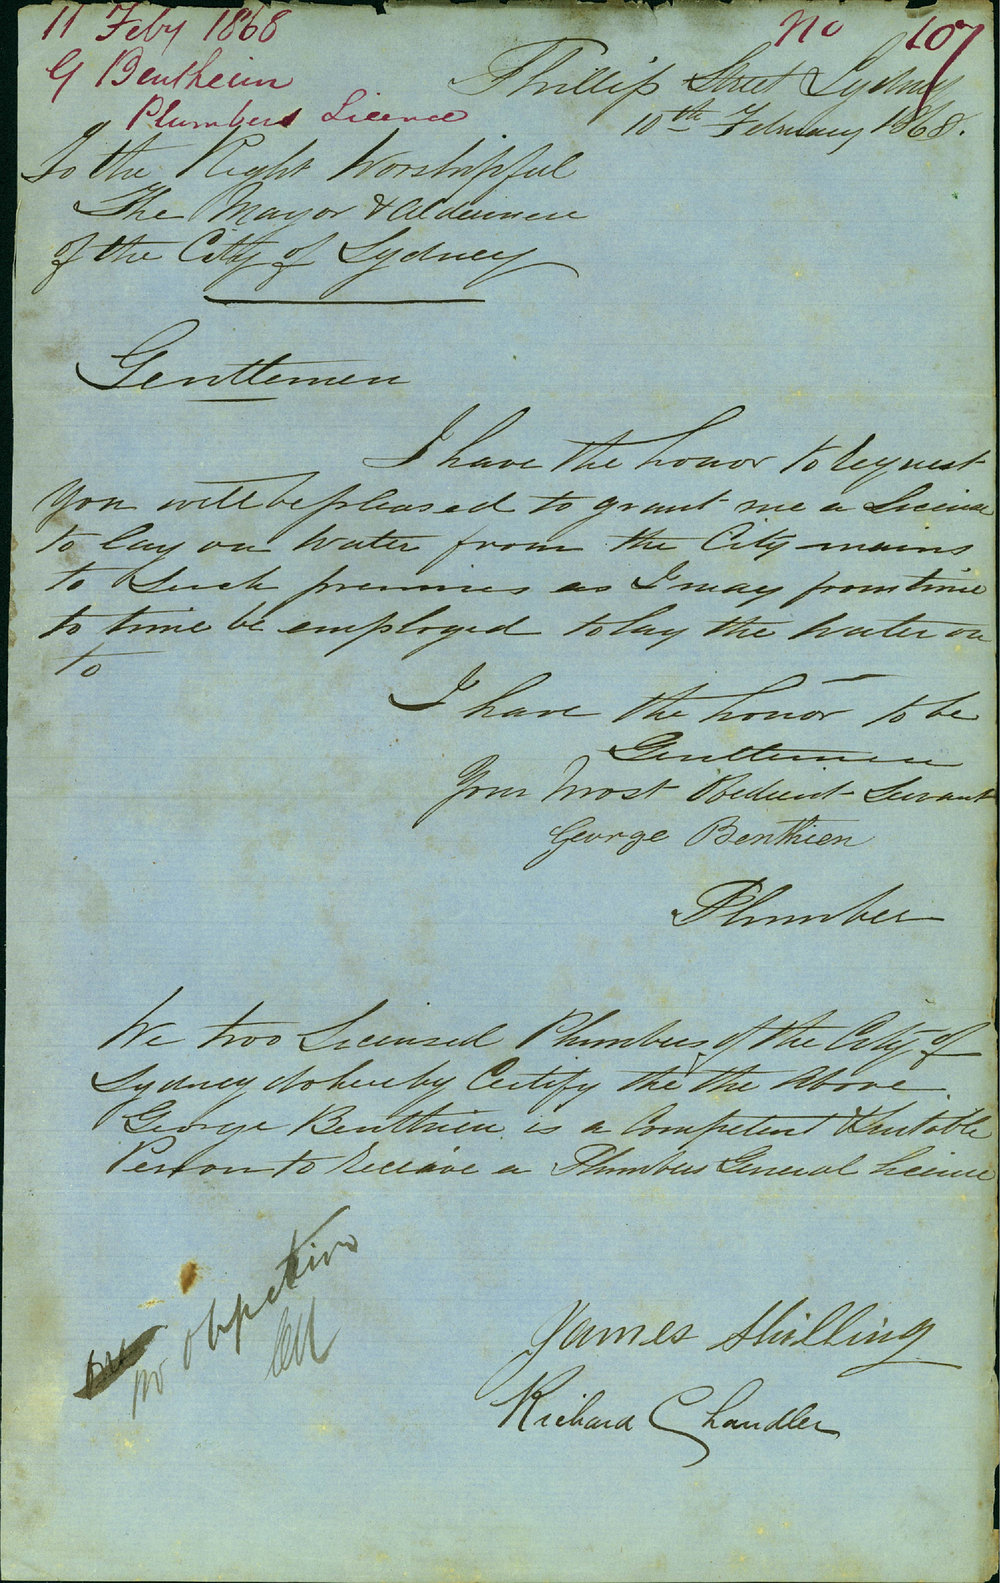 11 Feby 1868
No 107
G Bentheim
Plumbers Licence
Phillip Street Sydney
10th February 1868.
To the Right Worshipful
The Mayor & Aldermen
of the City of Sydney
Gentlemen
I have the honor to request
you will be pleased to grant me a Licence
to lay on Water from the City mains
to Such premises as I may from time
to time be employed to lay the water on
to
I have the honor to be
Gentlemen
Your Most Obedient Servant
George Benthien
Plumber
We two Licensed Plumbers of the City of
Sydney do hereby Certify the the Above
George Benthien is a Competent & Suitable
Person to Receive a Plumbers General Licence
no objection
James Shilling
Richard Chandler